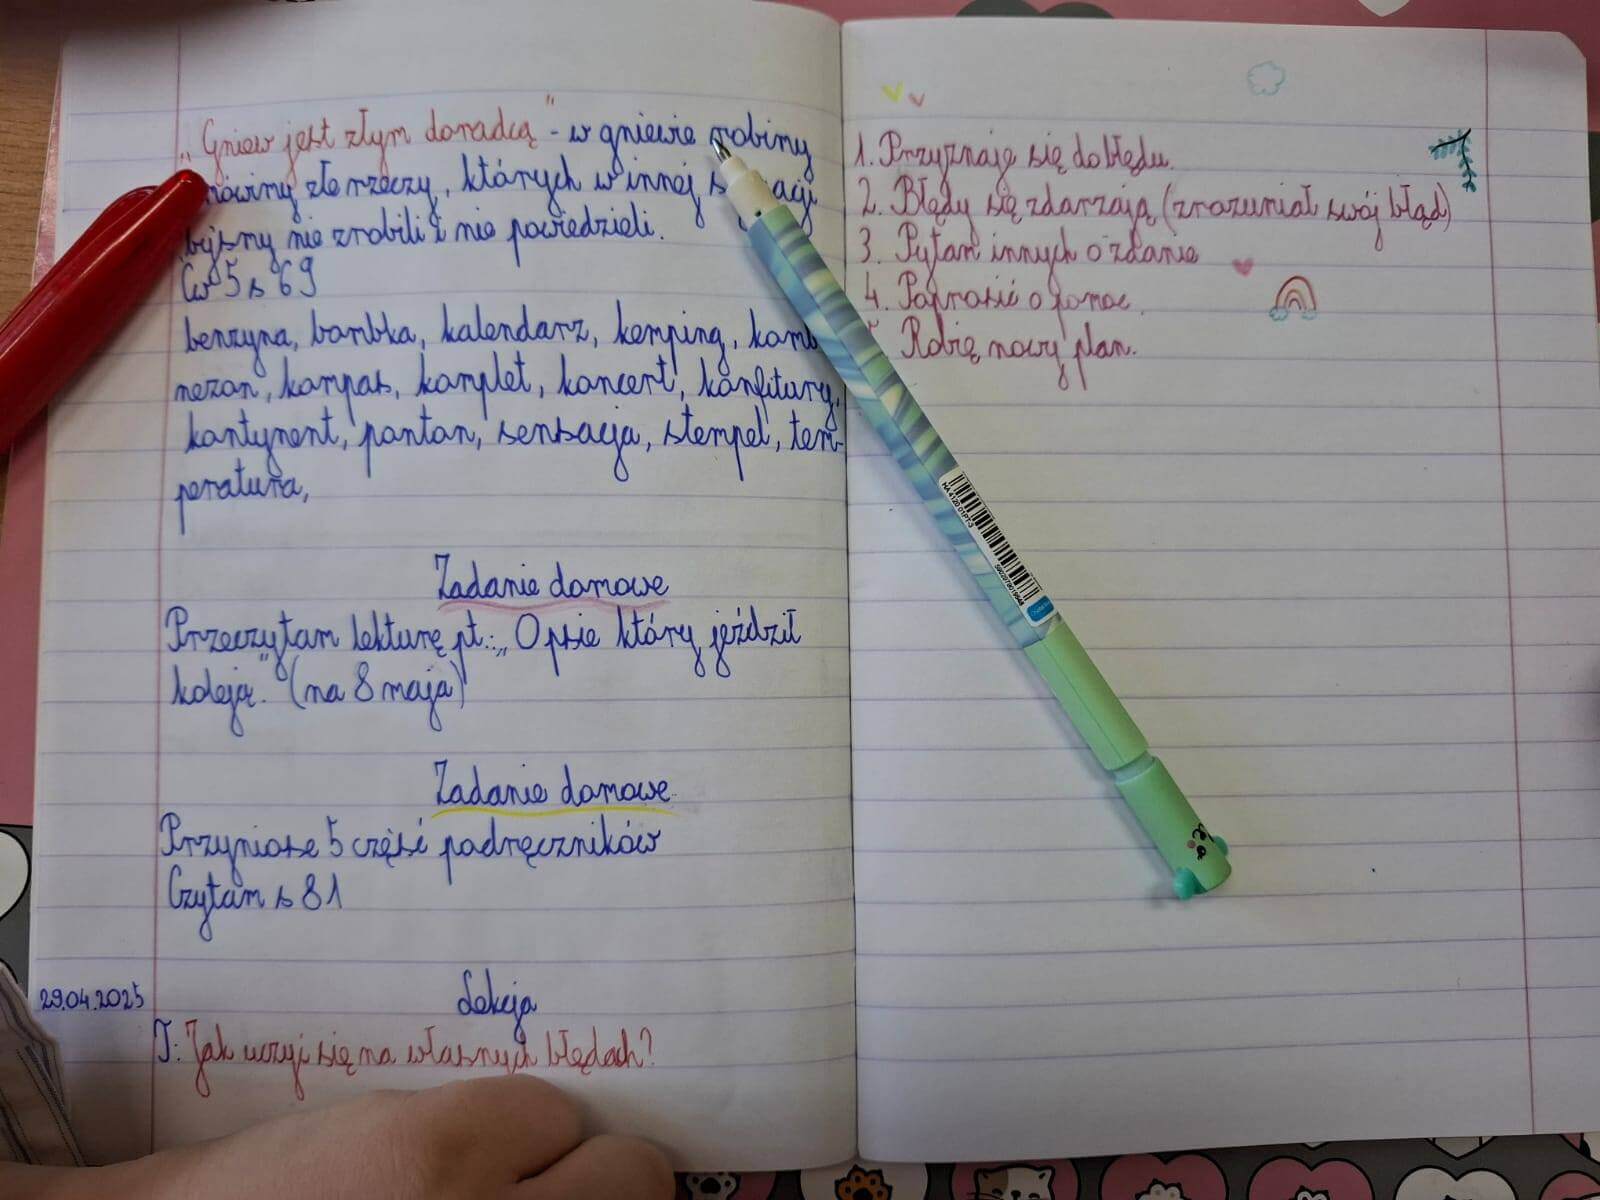 „Gniew jest złym doradcą" - w gniewie robimy
mówimy złe rzeczy, których w innej
byśmy nie zrobili i nie powiedzieli.
Ćw 5 s 69
benzyna, bombka, kalendarz, kemping, komb
nezon, kompas, komplet, koncert, konfitury,
kontynent, ponton, sensacja, stempel, tem-
peratura,
Zadanie domowe
Przeczytam lekturę pt.: „O psie który jeździł
koleją." (na 8 maja)
Zadanie domowe
Przyniosę 5 część podręczników
Czytam s 81
29.04.2025
Lekcja
T: Jak uczyi się na własnych błędach?
1. Przyznaję się do błędu.
2. Błędy się zdarzają (zrozumiał swój błąd)
3. Pytam innych o zdanie
4. Poprosić o pomoc.
Robię nowy plan.
HA 4120 01PT-3